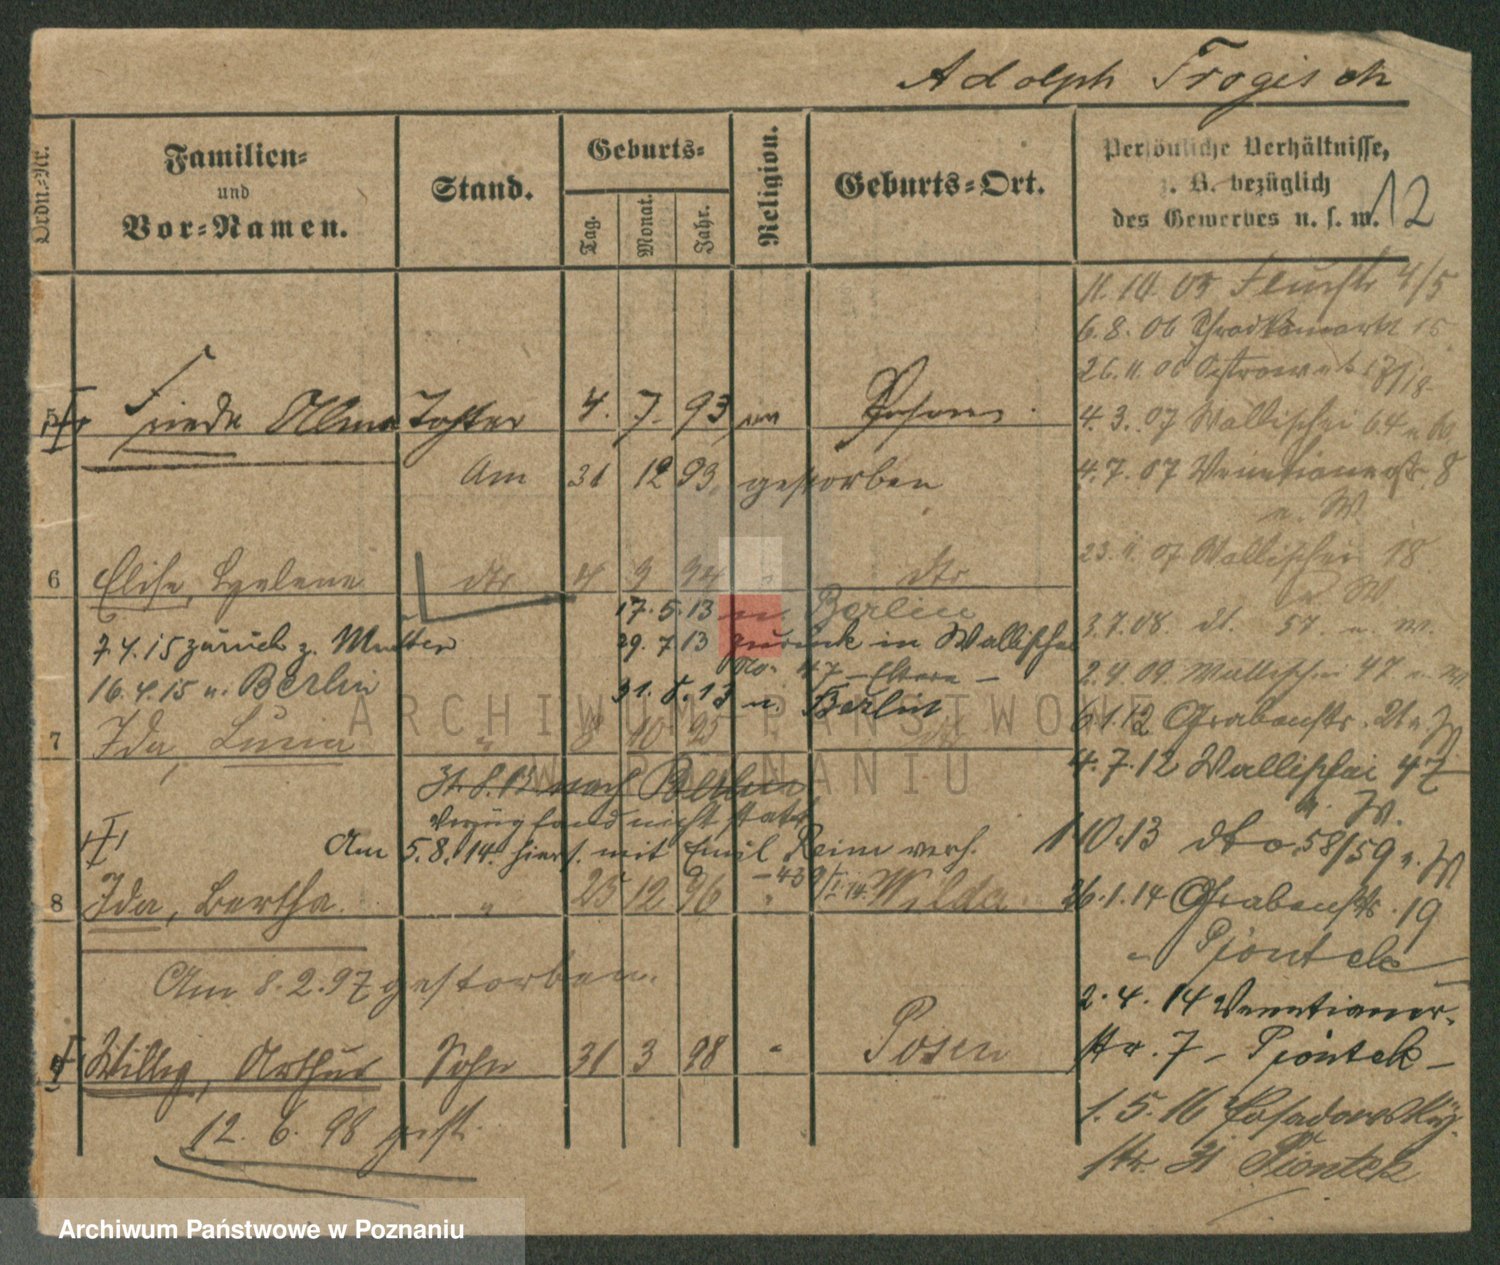 Adolph Trogisch
Ordn.-Nr.
Familien-
und
Vor-Namen.
Stand.
Geburts-
Tag.
Monat.
Jahr.
Religion.
Geburts-Ort.
Persönliche Verhältnisse,
z. B. bezüglich
des Gewerbes u. s. w.
12
11. 10. 05 4/5
6. 8. 06 15
26. 11. 06 Ostrowek 17/18
4. 3. 07 Wallischei 64
5 Frieda Alma Tochter 4. 7. 93 Posen
Am 31 12 93 gestorben
4. 7. 07 Venetianerstr. 8
u. W.
23. 11. 07 Wallischei 18
6 Elise, Helene dto 4 9 94 dto
17. 5. 13 n. Berlin
3.7.08 dt. 57. u. W.
7.4.15 zurück z. Mutter
29. 7 13 zurück in Wallischei
No. 47 – Eltern –
2.4.09 Wallischei 47 u. W
16.4.15 n. Berlin
31. 8. 13 n. Berlin
6.1.12 Grabenstr. W
7 Ida, Luzia " 8 10 95 dto
4.7.12 Wallischei 47
u. W.
31. 8. 13 nach Berlin
Verzug fand nicht statt
Am 5.8.14. hiers. mit Emil Reim verh.
1 10.13 dto 58/59 u. W
8 Ida, Bertha. " 25 12 96 " Wilda.
26.1.14 Grabenstr. 19
Am 8.2.97 gestorben.
Piontek
2. 4. 14 Venetianer-
str. 7 – Piontek –
9 Willy, Arthur Sohn 31 3 98 " Posen
1. 5. 16 Posadowsky-
12. 6. 98 gest.
str. 31 Piontek
ARCHIWUM PAŃSTWOWE
W POZNANIU
Archiwum Państwowe w Poznaniu